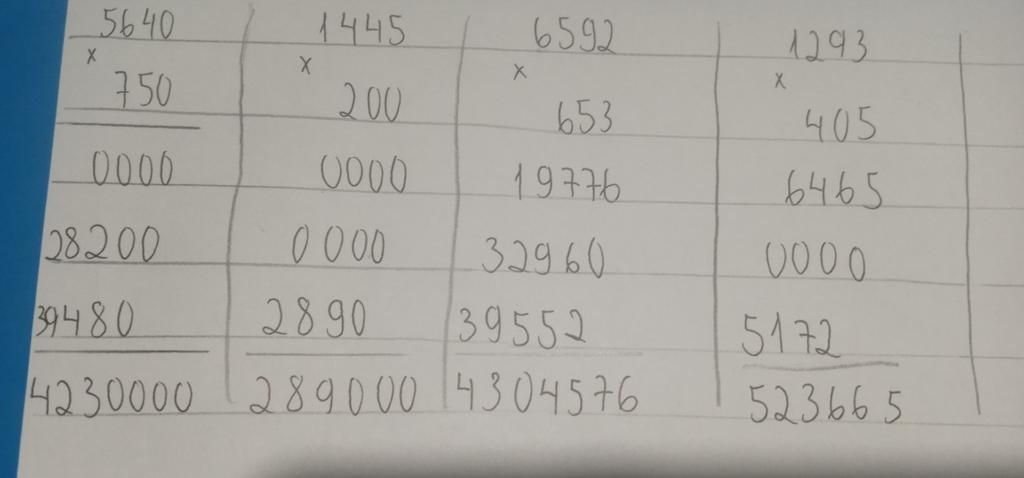 5640 1445 6592 1293
x x x x
750 200 653 405
0000 0000 19776 6465
28200 0000 32960 0000
39480 2890 39552 5172
4230000 289000 4304576 523665